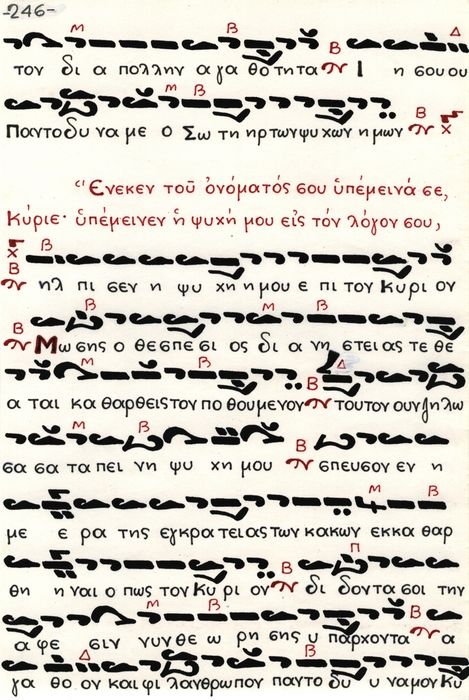 -246-
τον δι α πολλην αγα θο τητα Ι η σου ου
Παντοδυ να με ο Σω τη ηρ των ψυ χων η μων
Ἕνεκεν τοῦ ὀνόματός σου ὑπέμεινά σε,
Κύριε· ὑπέμεινεν ἡ ψυχή μου εἰς τόν λόγον σου,
ηλ πι σεν η ψυ χη η μου ε πι τον Κυρι ον
Μω σης ο θεσπεσι ος δι α νη στει ας τε θε
α ται κα θαρθεις τον πο θουμενον τουτον ουν ζηλω
σα σα τα πει νη ψυ χη μου σπευσον εν η
με ε ρα της εγκρα τειας των κακων εκκα θαρ
θη η ναι ο πως τον Κυ ρι ον δι δοντα σοι την
α φε σιν νυν θε ω ρη σης υ παρχοντα α
γα θο ον και φι λανθρωπον παντο δυ υ ναμον Κυ